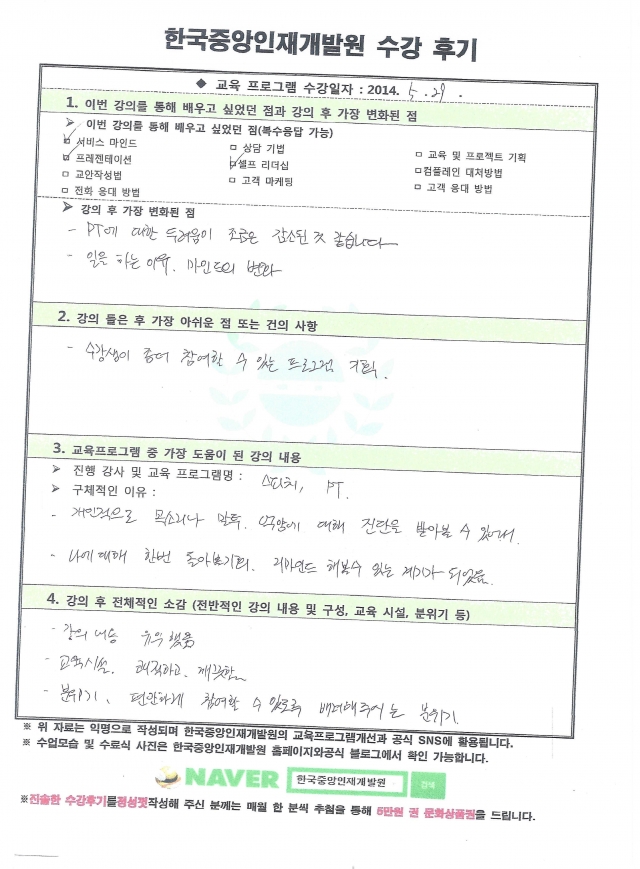 한국중앙인재개발원 수강 후기
◆ 교육 프로그램 수강일자 : 2014. 5. 29.
1. 이번 강의를 통해 배우고 싶었던 점과 강의 후 가장 변화된 점
➤ 이번 강의를 통해 배우고 싶었던 점(복수응답 가능)
☑ 서비스 마인드 □ 상담 기법 □ 교육 및 프로젝트 기획
☑ 프레젠테이션 ☑ 셀프 리더십 □컴플레인 대처방법
□ 교안작성법 □ 고객 마케팅 □ 고객 응대 방법
□ 전화 응대 방법
➤ 강의 후 가장 변화된 점
- PT에 대한 두려움이 조금은 감소된 것 같습니다
- 일을 하는 이유. 마인드의 변화
2. 강의 들은 후 가장 아쉬운 점 또는 건의 사항
- 수강생이 좀더 참여할 수 있는 프로그램 기획.
3. 교육프로그램 중 가장 도움이 된 강의 내용
➤ 진행 강사 및 교육 프로그램명 : 스피치, PT.
➤ 구체적인 이유 :
- 개인적으로 목소리나 말투. 억양에 대해 진단을 받아볼 수 있어서.
- 나에 대해 한번 돌아보기회. 리마인드 해볼수 있는 계기가 되었음.
4. 강의 후 전체적인 소감 (전반적인 강의 내용 및 구성, 교육 시설, 분위기 등)
- 강의 내용 유익했음
- 교육시설. 쾌적하고. 깨끗함
- 분위기. 편안하게 참여할 수 있도록 배려해주는 분위기.
※ 위 자료는 익명으로 작성되며 한국중앙인재개발원의 교육프로그램개선과 공식 SNS에 활용됩니다.
※ 수업모습 및 수료식 사진은 한국중앙인재개발원 홈페이지와공식 블로그에서 확인 가능합니다.
NAVER 한국중앙인재개발원 검색
※진솔한 수강후기를정성껏작성해 주신 분께는 매월 한 분씩 추첨을 통해 5만원 권 문화상품권을 드립니다.